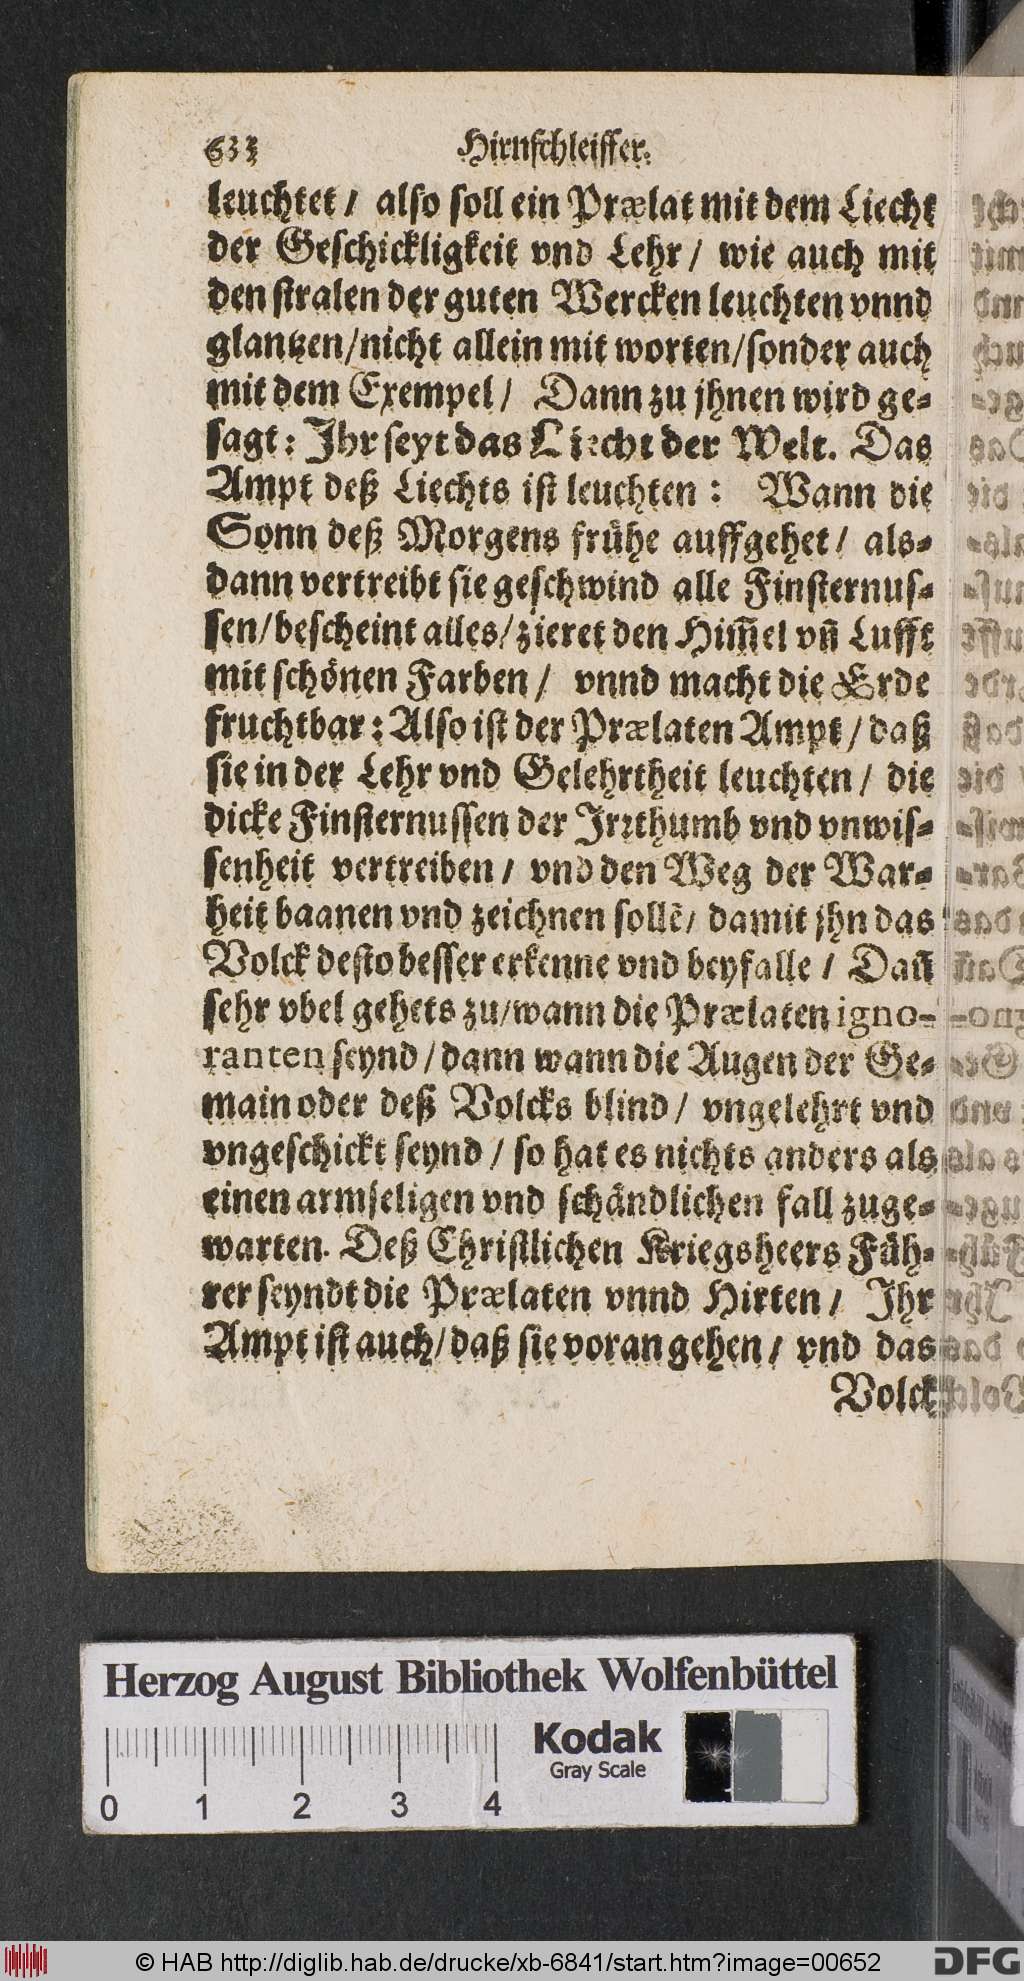 633 Hirnschleiffer.
leuchtet / also soll ein Prælat mit dem Liecht
der Geschickligkeit vnd Lehr / wie auch mit
den stralen der guten Wercken leuchten vnnd
glantzen/nicht allein mit worten/sonder auch
mit dem Exempel / Dann zu jhnen wird ge-
sagt: Ihr seyt das Liecht der Welt. Das
Ampt deß Liechts ist leuchten: Wann die
Sonn deß Morgens frühe auffgehet / als-
dann vertreibt sie geschwind alle Finsternus-
sen/bescheint alles/zieret den Him̃el vñ Lufft
mit schönen Farben / vnnd macht die Erde
fruchtbar: Also ist der Prælaten Ampt / daß
sie in der Lehr vnd Gelehrtheit leuchten / die
dicke Finsternussen der Irꝛthumb vnd vnwis-
senheit vertreiben / vnd den Weg der War-
heit baanen vnd zeichnen sollẽ/ damit jhn das
Volck desto besser erkenne vnd beyfalle / Dañ
sehr vbel gehets zu/wann die Prælaten igno-
ranten seynd / dann wann die Augen der Ge-
main oder deß Volcks blind / vngelehrt vnd
vngeschickt seynd / so hat es nichts anders als
einen armseligen vnd schändlichen fall zuge-
warten. Deß Christlichen Kriegsheers Füh-
rer seyndt die Prælaten vnnd Hirten / Ihr
Ampt ist auch/daß sie voran gehen / vnd das
Volck
Herzog August Bibliothek Wolfenbüttel
Kodak
Gray Scale
0 1 2 3 4
© HAB http://diglib.hab.de/drucke/xb-6841/start.htm?image=00652
DFG